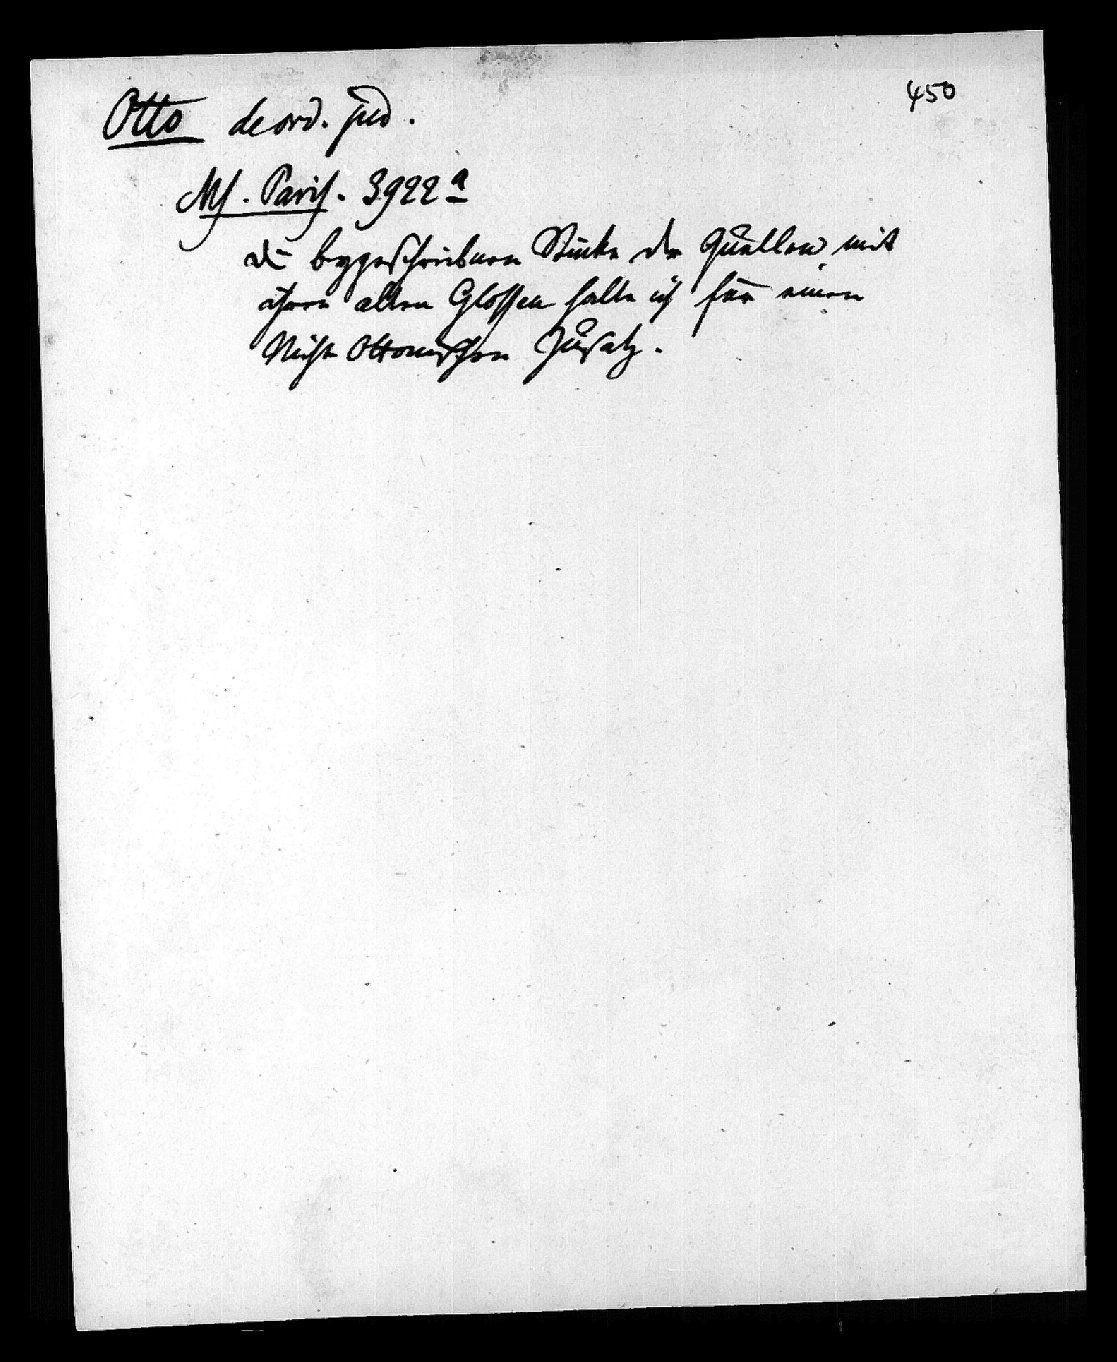 450
Otto de ord. jud.
Ms. Paris. 3922 a
die beygeschriebnen Stücke der Quellen mit
ihren alten Glossen halte ich für einen
Nicht Ottonischen Zusatz.